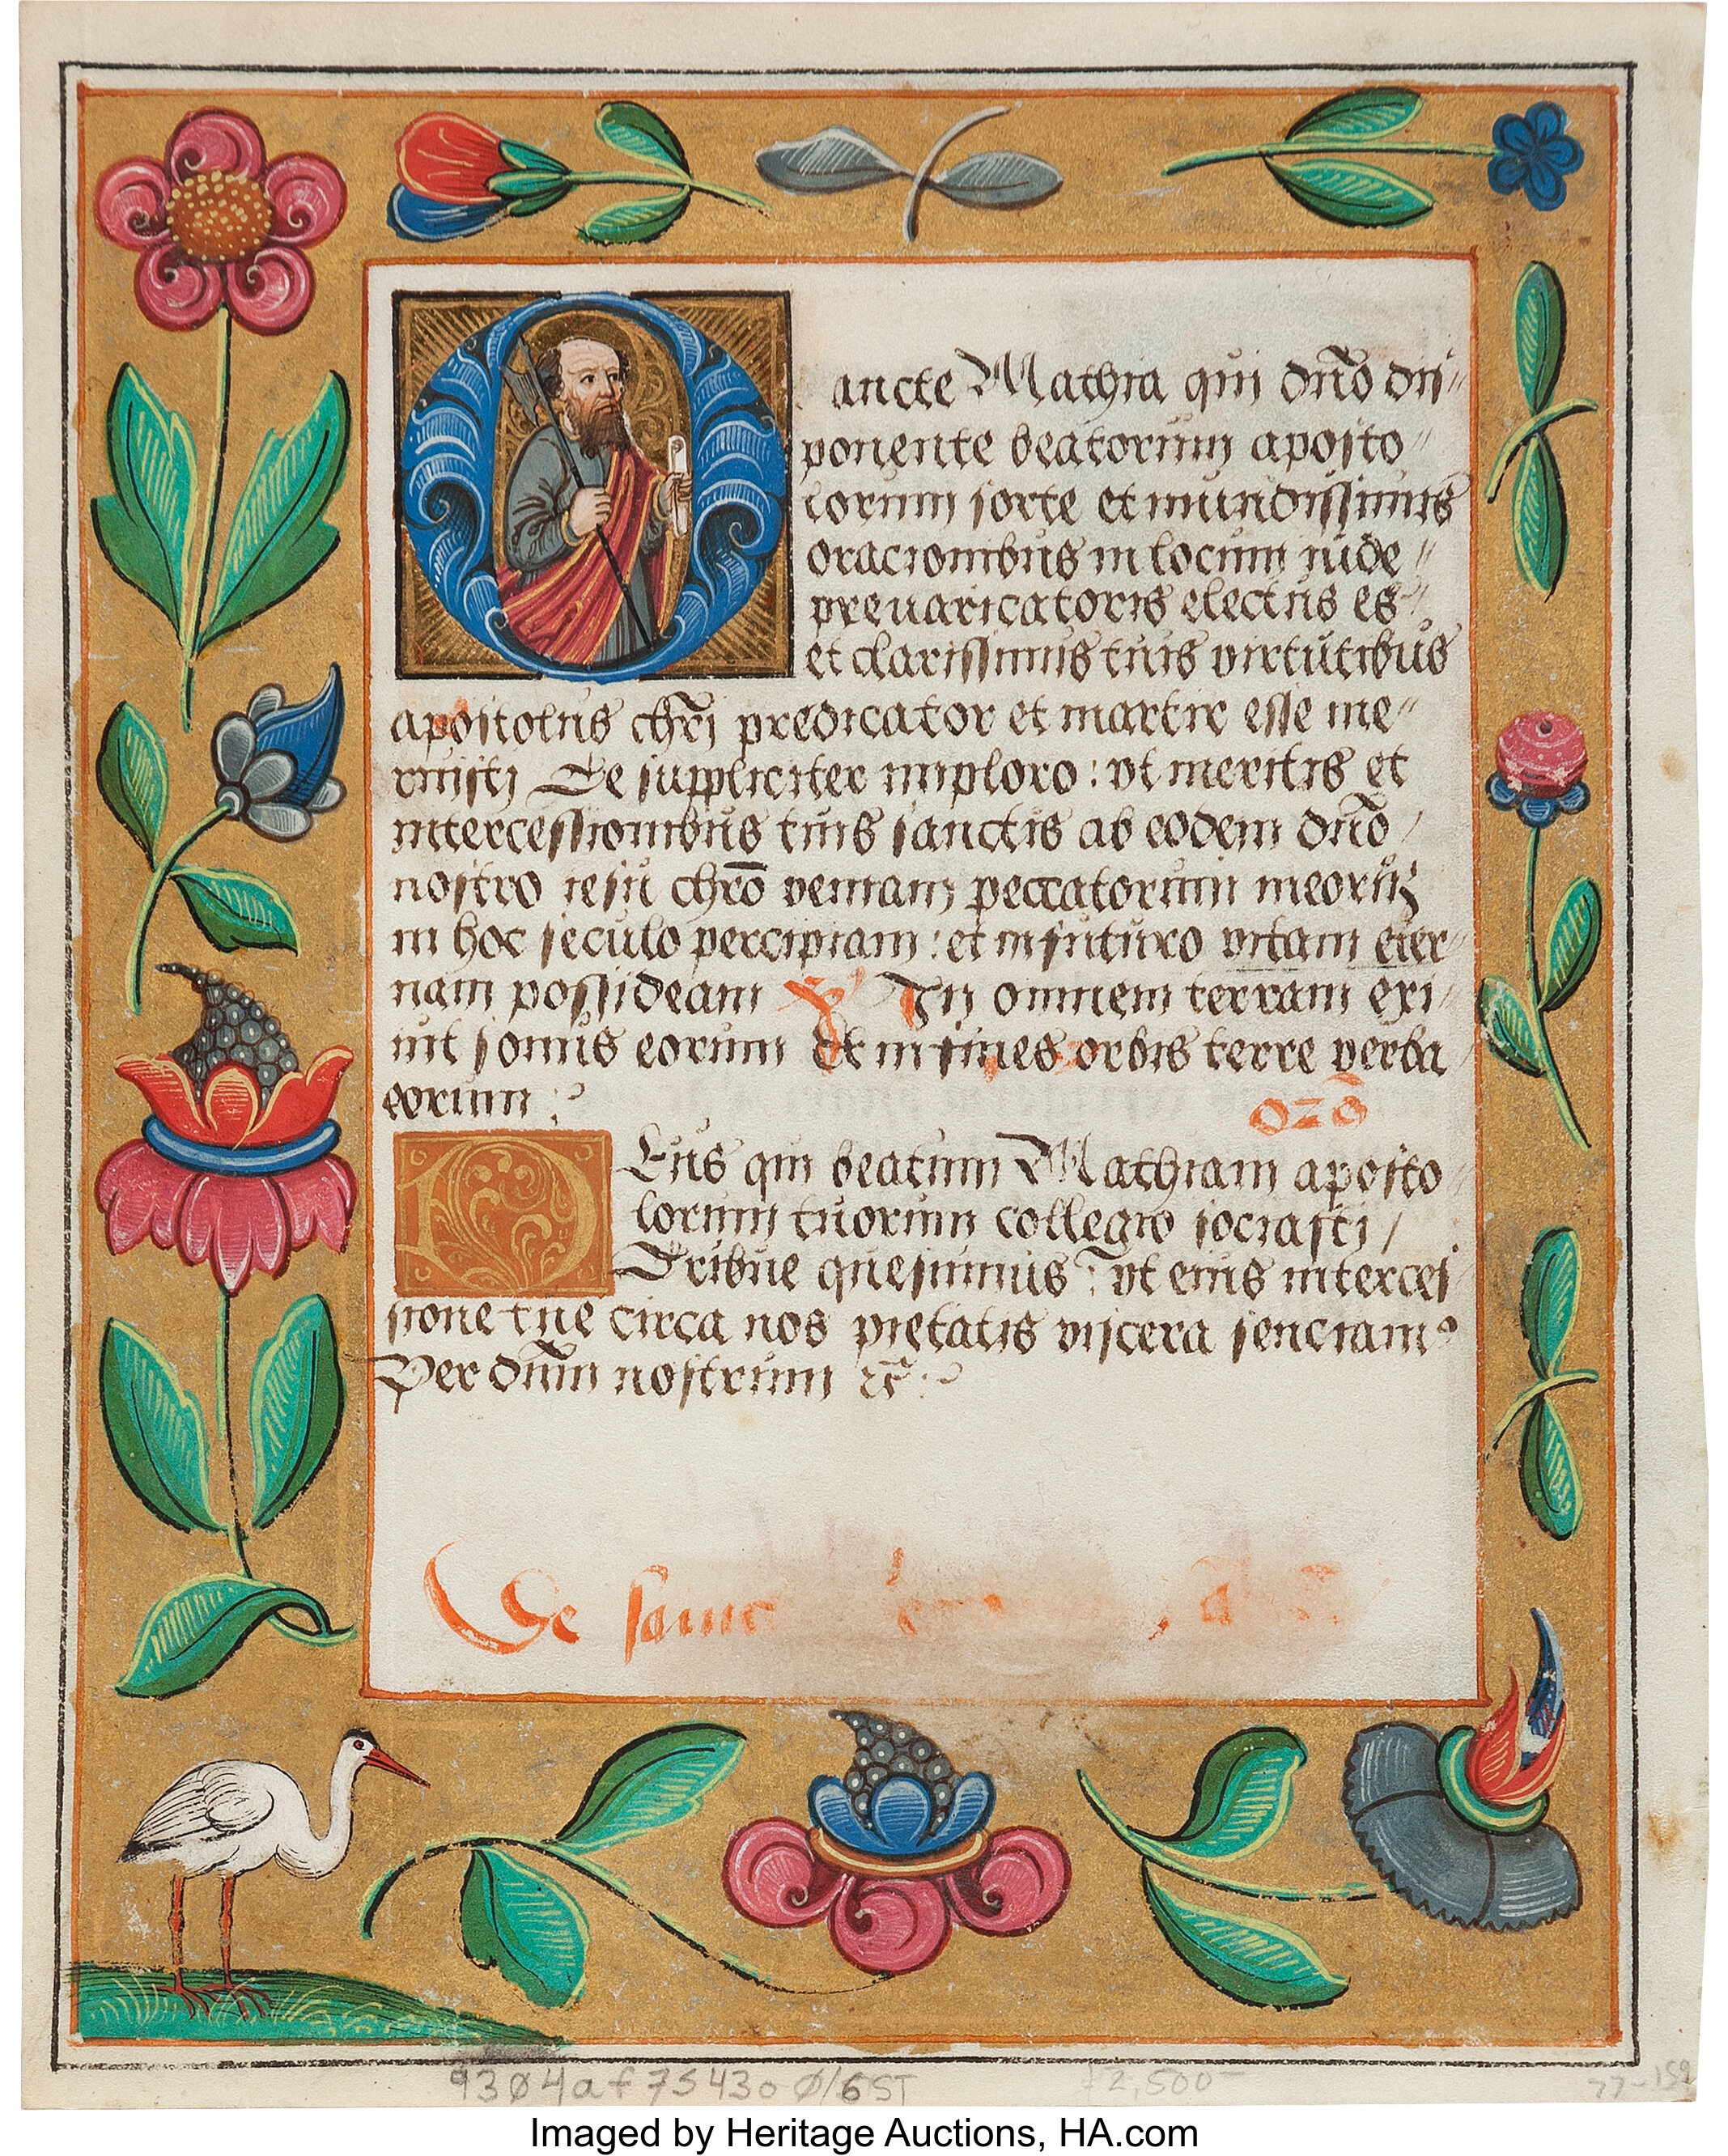 O ancte Mathia qui dño dis〃
ponente beatorum aposto〃
lorum sorte et mundissimis
oracionibus in locum iude〃
prevaricatoris electus es〃
et clarissimus tuis virtutibus
apostolus chrĩ predicator et martir esse me〃
ruisti Te suppliciter imploro : vt meritis et
intercessionibus tuis sanctis ab eodem dño /
nostro iesu chrō veniam peccatorum meorũ
in hoc seculo percipiam : et in futuro vitam eter〃
nam possideam ℣ In omnem terram exi /
uit sonus eorum Et in fines orbis terre verba
eorum :
ozō
D Eus qui beatum Mathiam aposto
lorum tuorum collegio sociasti /
Tribue quesumus : vt eius interces
sione tue circa nos pietatis viscera senciamꝰ
Per dñm nostrum ⁊c̃ :
De sanc
9304af 75430 Ø/6ST
2,500-
77-159
Imaged by Heritage Auctions, HA.com